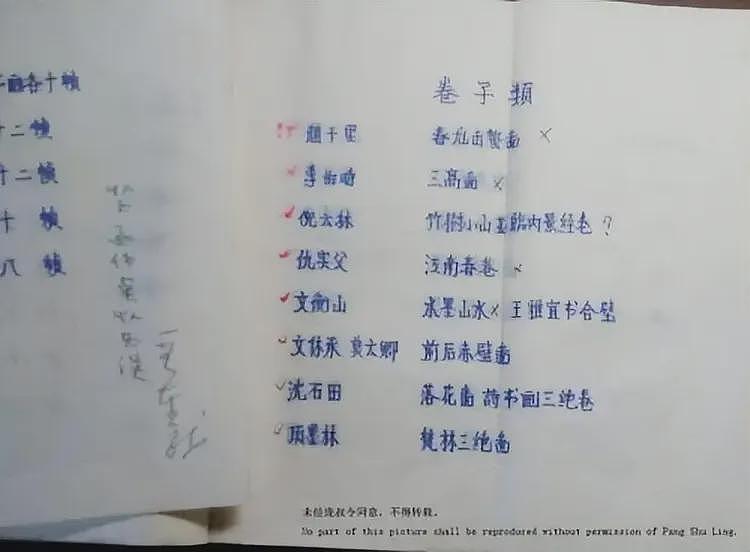 面各十幀
十二幀
十二幀
十 幀
八 幀
卷子類
趙千里 春龙出蛰啚 ×
李伯時 三高啚 ×
倪云林 竹樹小山 臨内景经卷 ?
仇实父 江南春卷 ×
文衡山 水墨山水× 王雅宜书合壁
文休承 莫太卿 前后赤壁啚
沈石田 落花啚 詩书画三绝卷
项墨林 梵林三绝啚
未经庞叔令同意,不得转载。
No part of this picture shall be reproduced without permission of Pang Shu Ling.